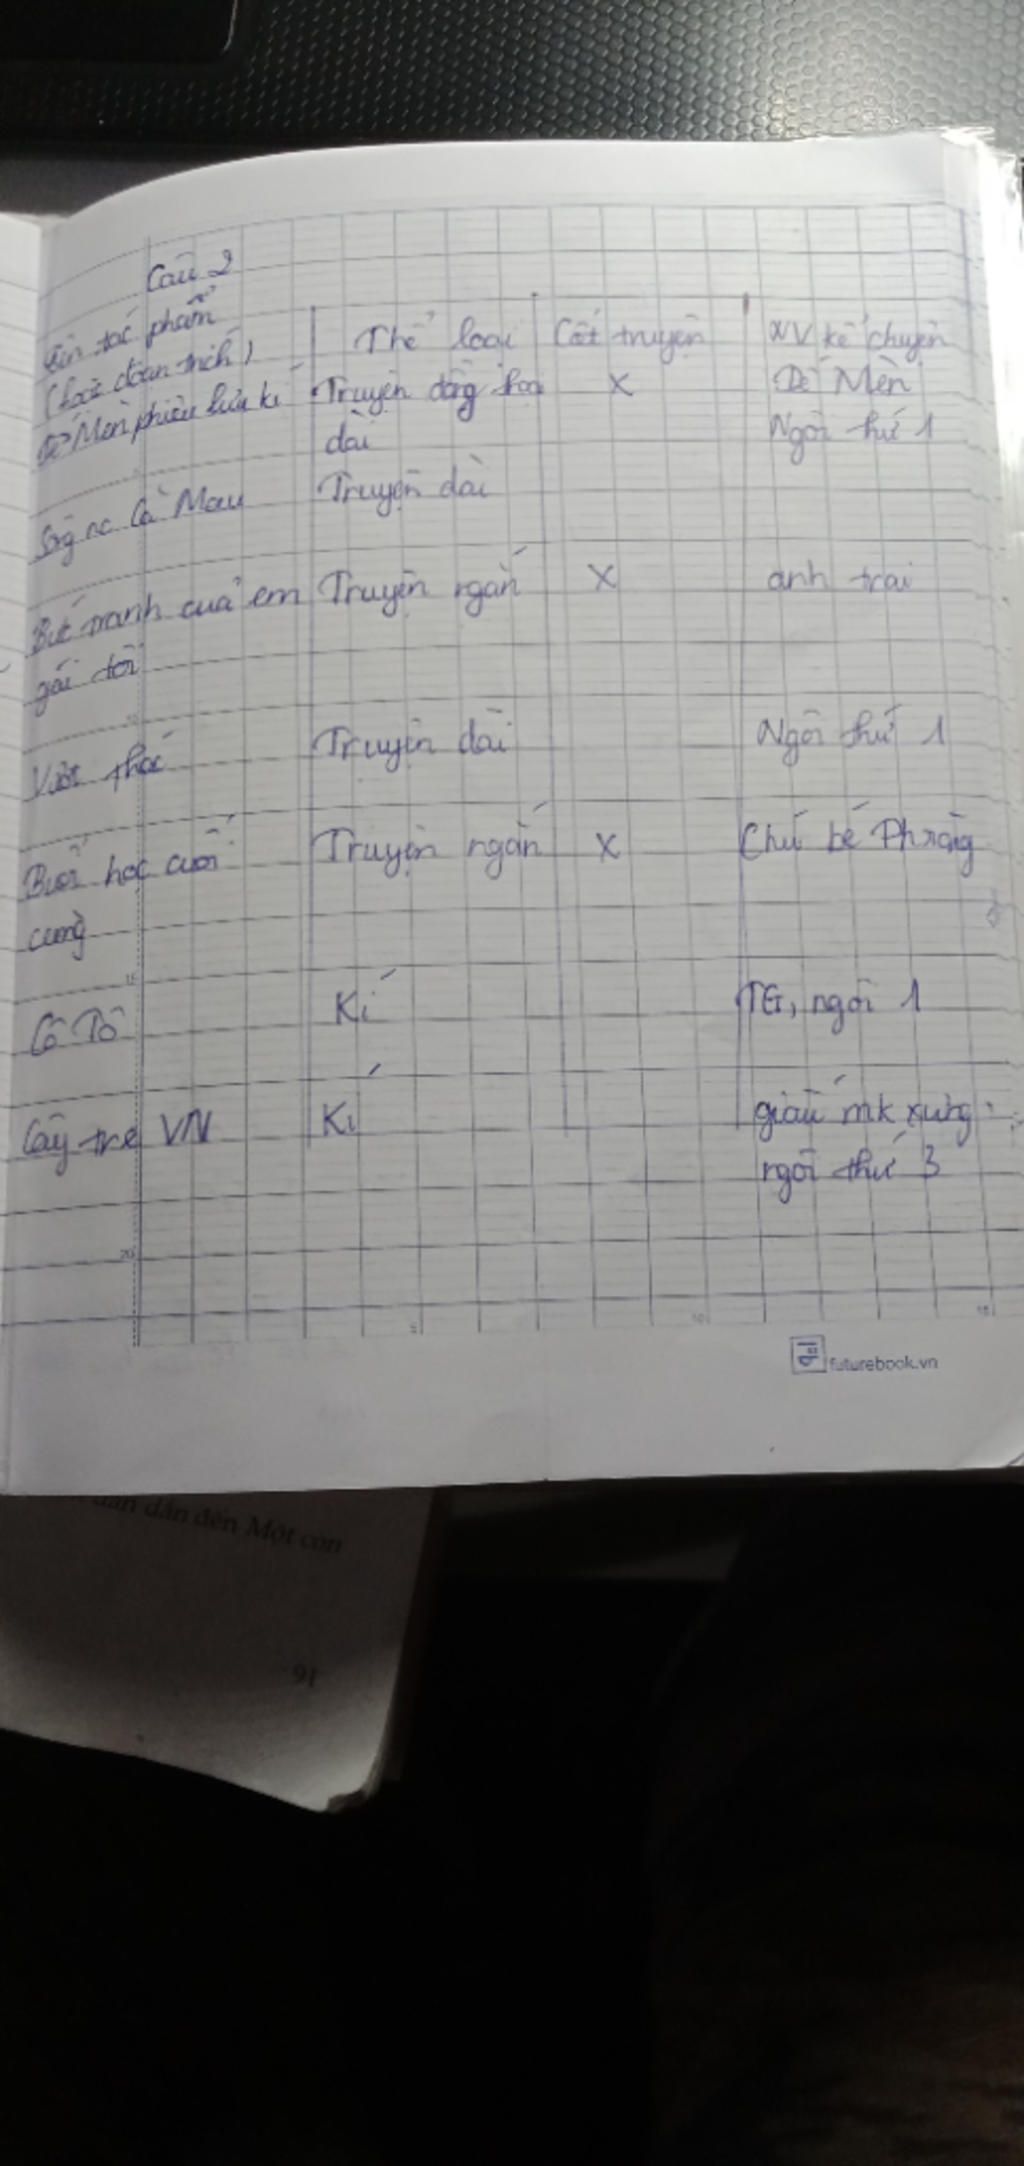 Câu 2
Tên tác phẩm (hoặc đoạn trích) Thể loại Cốt truyện NV kể chuyện
Dế Mèn phiêu lưu kí Truyện đồng thoại X Dế Mèn
dài Ngôi thứ 1
Sông nc Cà Mau Truyện dài
Bức tranh của em Truyện ngắn X anh trai
gái tôi
Vượt thác Truyện dài Ngôi thứ 1
Buổi học cuối Truyện ngắn X Chú bé Phrăng
cùng
Cô Tô Kí TG, ngôi 1
Cây tre VN Kí giấu mk xưng
ngôi thứ 3
5
10
15
15
20
futurebook.vn
dần dần đến Một còn
91